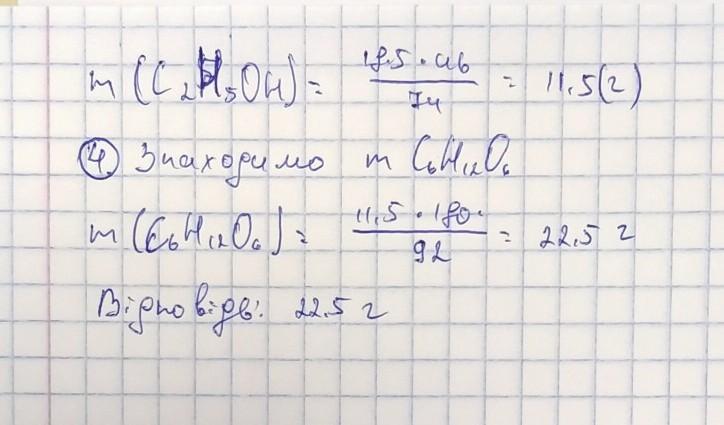 m (C₂H₅OH) = 18.5 · 46 / 74 = 11,5(г)
④ Знаходимо m C₆H₁₂O₆
m (C₆H₁₂O₆) = 11,5 · 180 / 92 = 22,5 г
Відповідь: 22.5 г